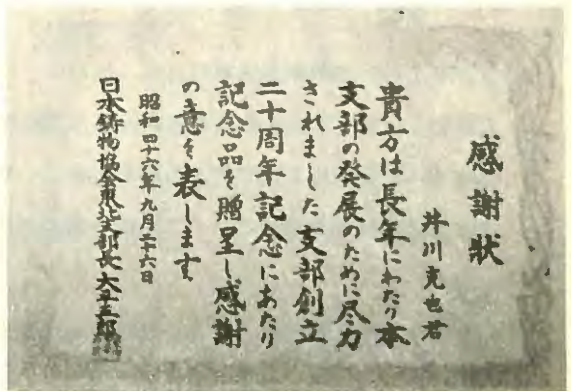 感謝状
井川克也君
貴方は長年にわたり本
支部の発展のために尽力
されました支部創立
二十周年記念にあたり
記念品を贈呈し感謝
の意を表します
昭和四十六年九月二十六日
日本鋳物協会東北支部長 大平五郎